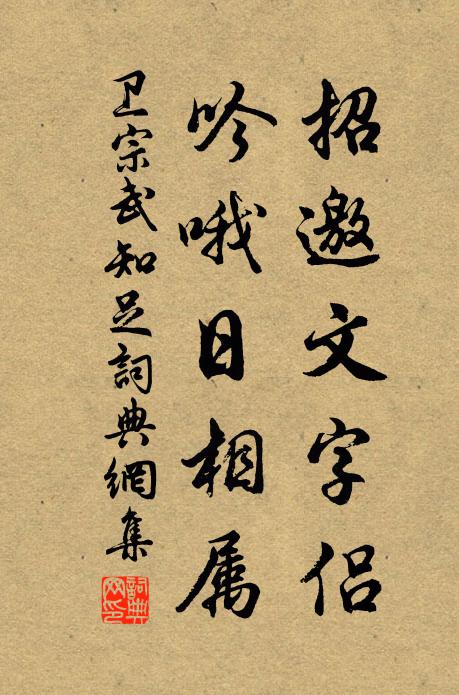 招邀文字侣
吟哦日相属
卫宗武知足詞典網集
詞典网印